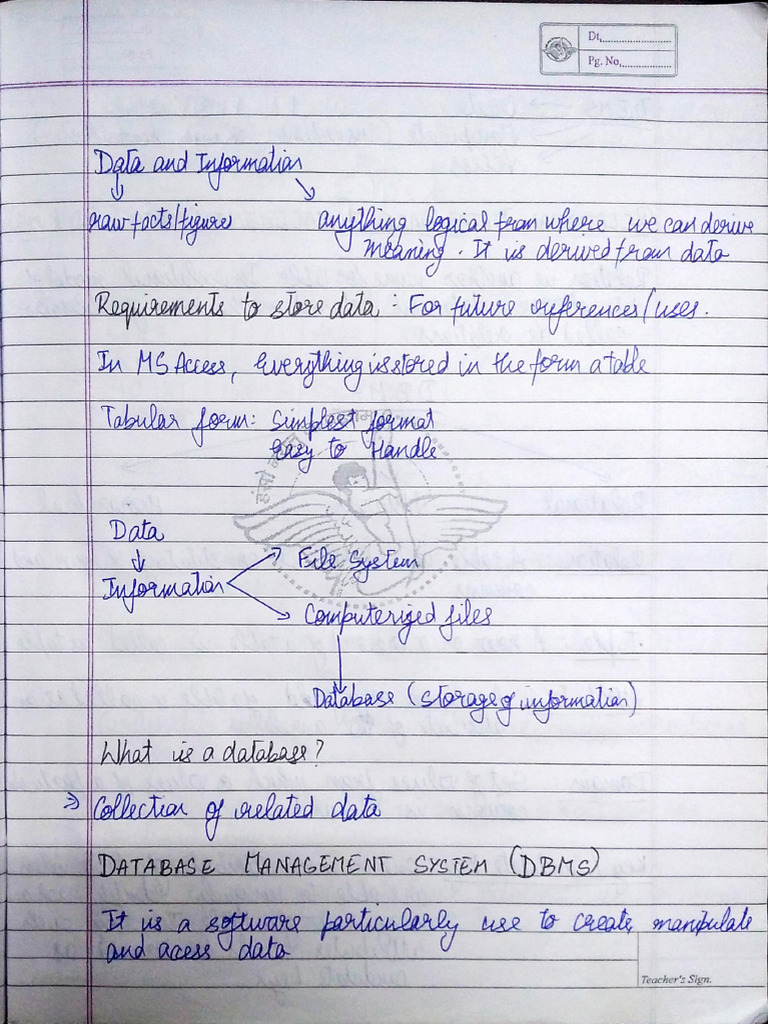 Dt.
Pg. No.
Data and Information
raw facts/figure
anything logical from where we can derive
meaning. It is derived from data
Requirements to store data : For future references/uses.
In MS Access, Everything is stored in the form a table
Tabular form: Simplest format
Easy to Handle
Data
Information
File System
Computerized files
Database (storage of information)
What is a database?
⇒ Collection of related data
DATABASE MANAGEMENT SYSTEM (DBMS)
It is a software particularly use to create, manipulate
and access data
Teacher's Sign.